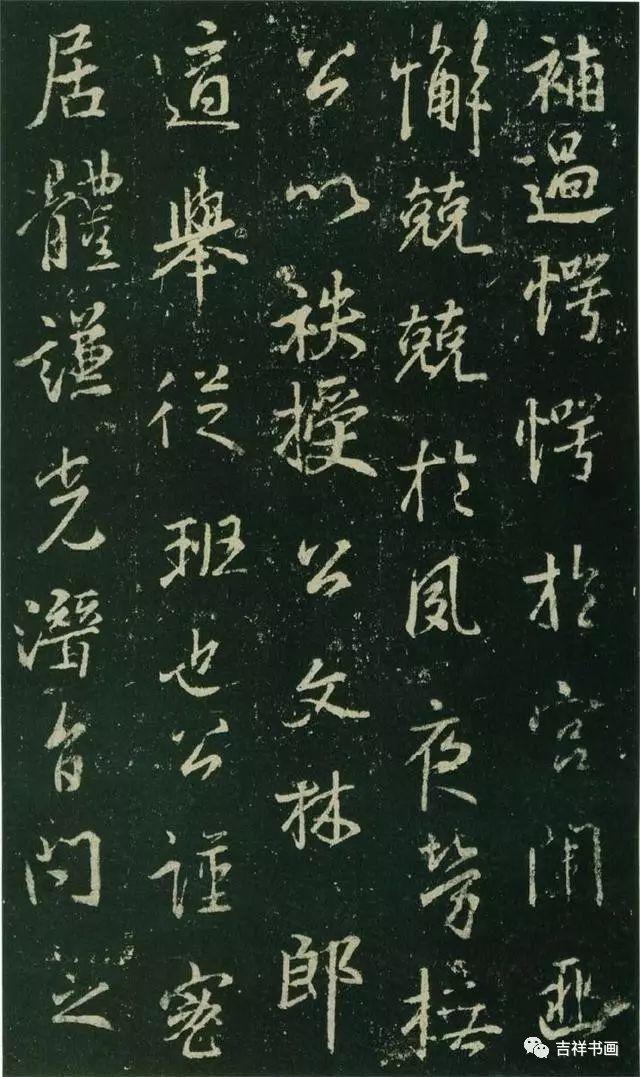 補過愕愕於宮闈匪
懈兢兢於夙夜勞橅
公以秩授公文林郎
適舉從班也公謹密
居體謙光潛旨問之
吉祥书画